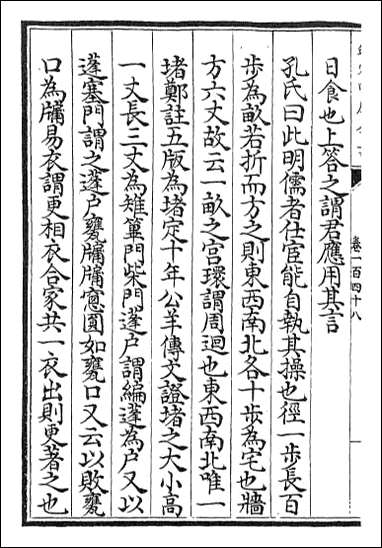 卷一百四十八
日食也上答之謂君應用其言
孔氏曰此明儒者仕官能自執其操也徑一步長百
步為畝若折而方之則東西南北各十步為宅也牆
方六丈故云一畝之宮環謂周迴也東西南北唯一
堵鄭註五版為堵定十年公羊傳文證堵之大小高
一丈長三丈為雉篳門柴門蓬戶謂編蓬為戶又以
蓬塞門謂之蓬户甕牖牖窻圓如甕口又云以敗甕
口為牖易衣謂更相衣合家共一衣出則更著之也